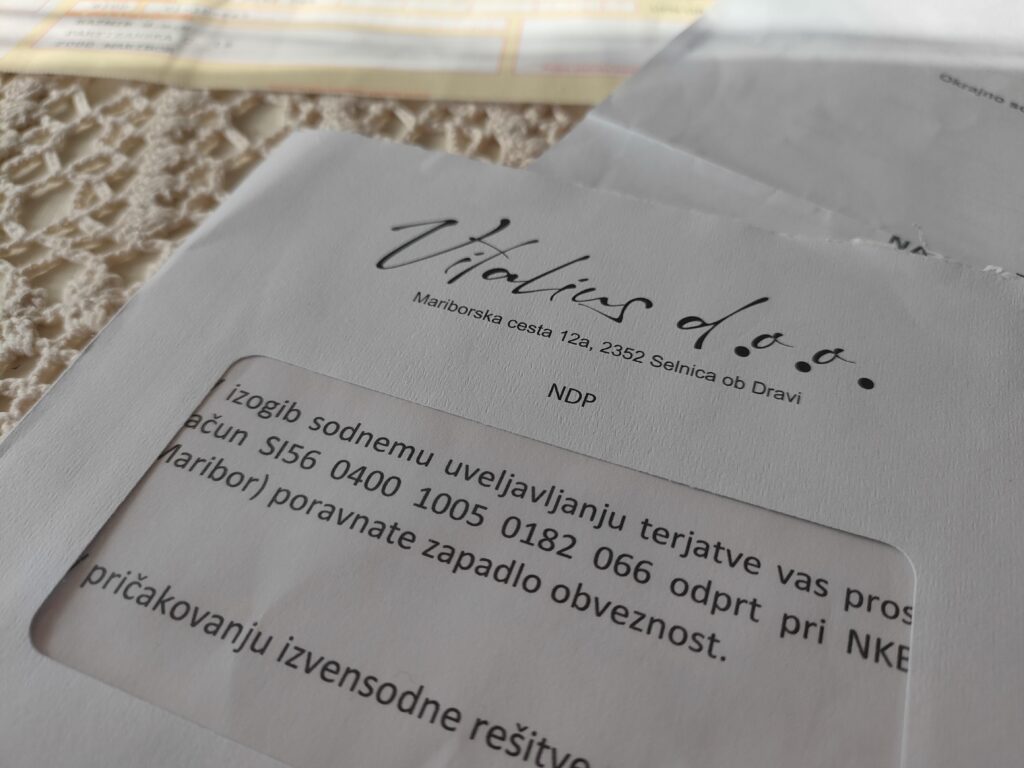 Okrajno
NA
Vitalius d.o.o.
Mariborska cesta 12a, 2352 Selnica ob Dravi
NDP
V izogib sodnemu uveljavljanju terjatve vas pros
ačun SI56 0400 1005 0182 066 odprt pri NKB
Maribor) poravnate zapadlo obveznost.
V pričakovanju izvensodne rešitve